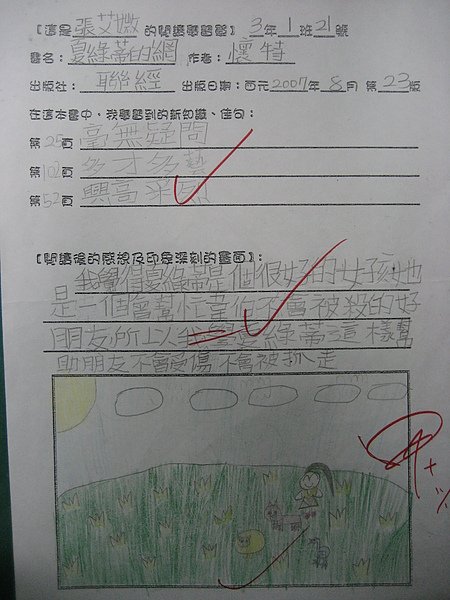 【這是張艾媺的閱讀學習單】 3年1班21號
書名：夏綠蒂的網 作者：懷特
出版社：聯經 出版日期：西元2007年8月 第23版
在這本書中，我學習到的新知識、佳句：
第25頁 毫無疑問
第102頁 多才多藝
第52頁 興高采烈
【閱讀後的感想及印象深刻的畫面】：
我覺得夏綠蒂是個很好的女孩她
是一個會幫忙韋伯不會被殺的好
朋友所以我夏綠蒂這樣幫
助朋友不會受傷不會被抓走